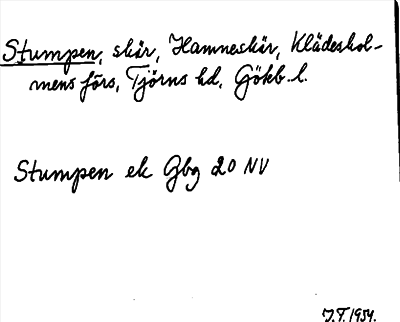 Stumpen, skär, Hamneskär, Klädeshol-
mens förs, Tjörns hd, Gökb. l.
Stumpen ek Gbg 20 NV
J.T. 1954.